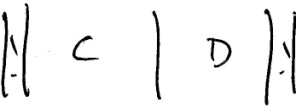 |: C | D :|